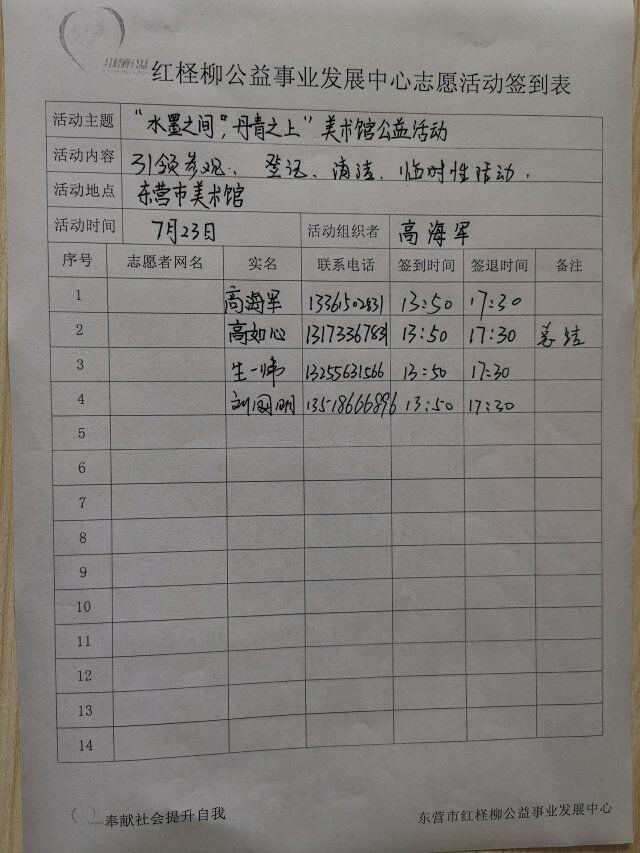 红柽柳公益
红柽柳公益事业发展中心志愿活动签到表
活动主题 “水墨之间，丹青之上”美术馆公益活动
活动内容 引领参观、登记、清洁、临时性活动.
活动地点 东营市美术馆
活动时间 7月23日 活动组织者 高海军
序号 志愿者网名 实名 联系电话 签到时间 签退时间 备注
1 高海军 13361502831 13:50 17:30
2 高如心 13173367831 13:50 17:30 总结
3 生一 13255631566 13:50 17:30
4 刘国明 13518666896 13:50 17:30
5
6
7
8
9
10
11
12
13
14
奉献社会提升自我 东营市红柽柳公益事业发展中心